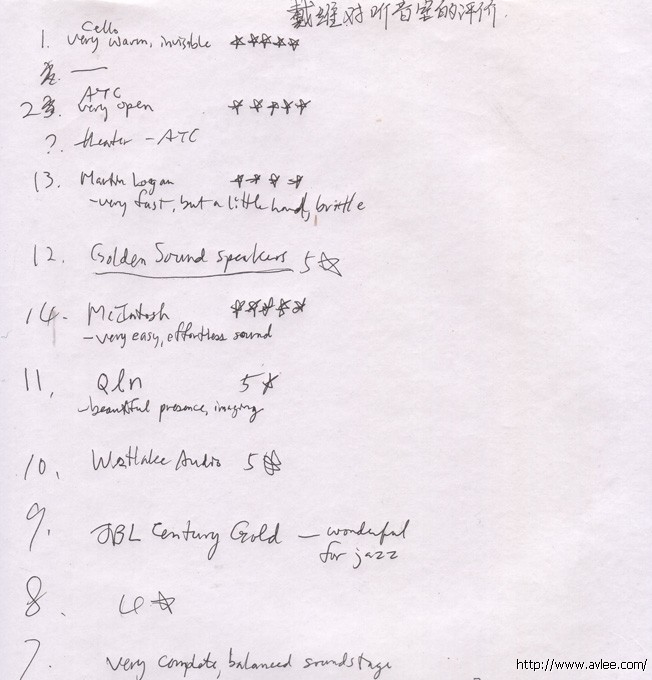 戴维对听音室的评价.
Cello
1. very warm, invisible ☆☆☆☆☆
—
ATC
2 very open ☆☆☆☆☆
?. theater - ATC
13. Martin Logan ☆☆☆☆
- very fast, but a little hard, brittle
12. Golden Sound speakers 5☆
14. McIntosh ☆☆☆☆☆
- very easy, effortless sound
11. Qln 5☆
- beautiful presence, imaging
10. Westlake Audio 5☆
9. JBL Century Gold - wonderful
for jazz
8. 4☆
7. very complete, balanced soundstage
http://www.avlee.com